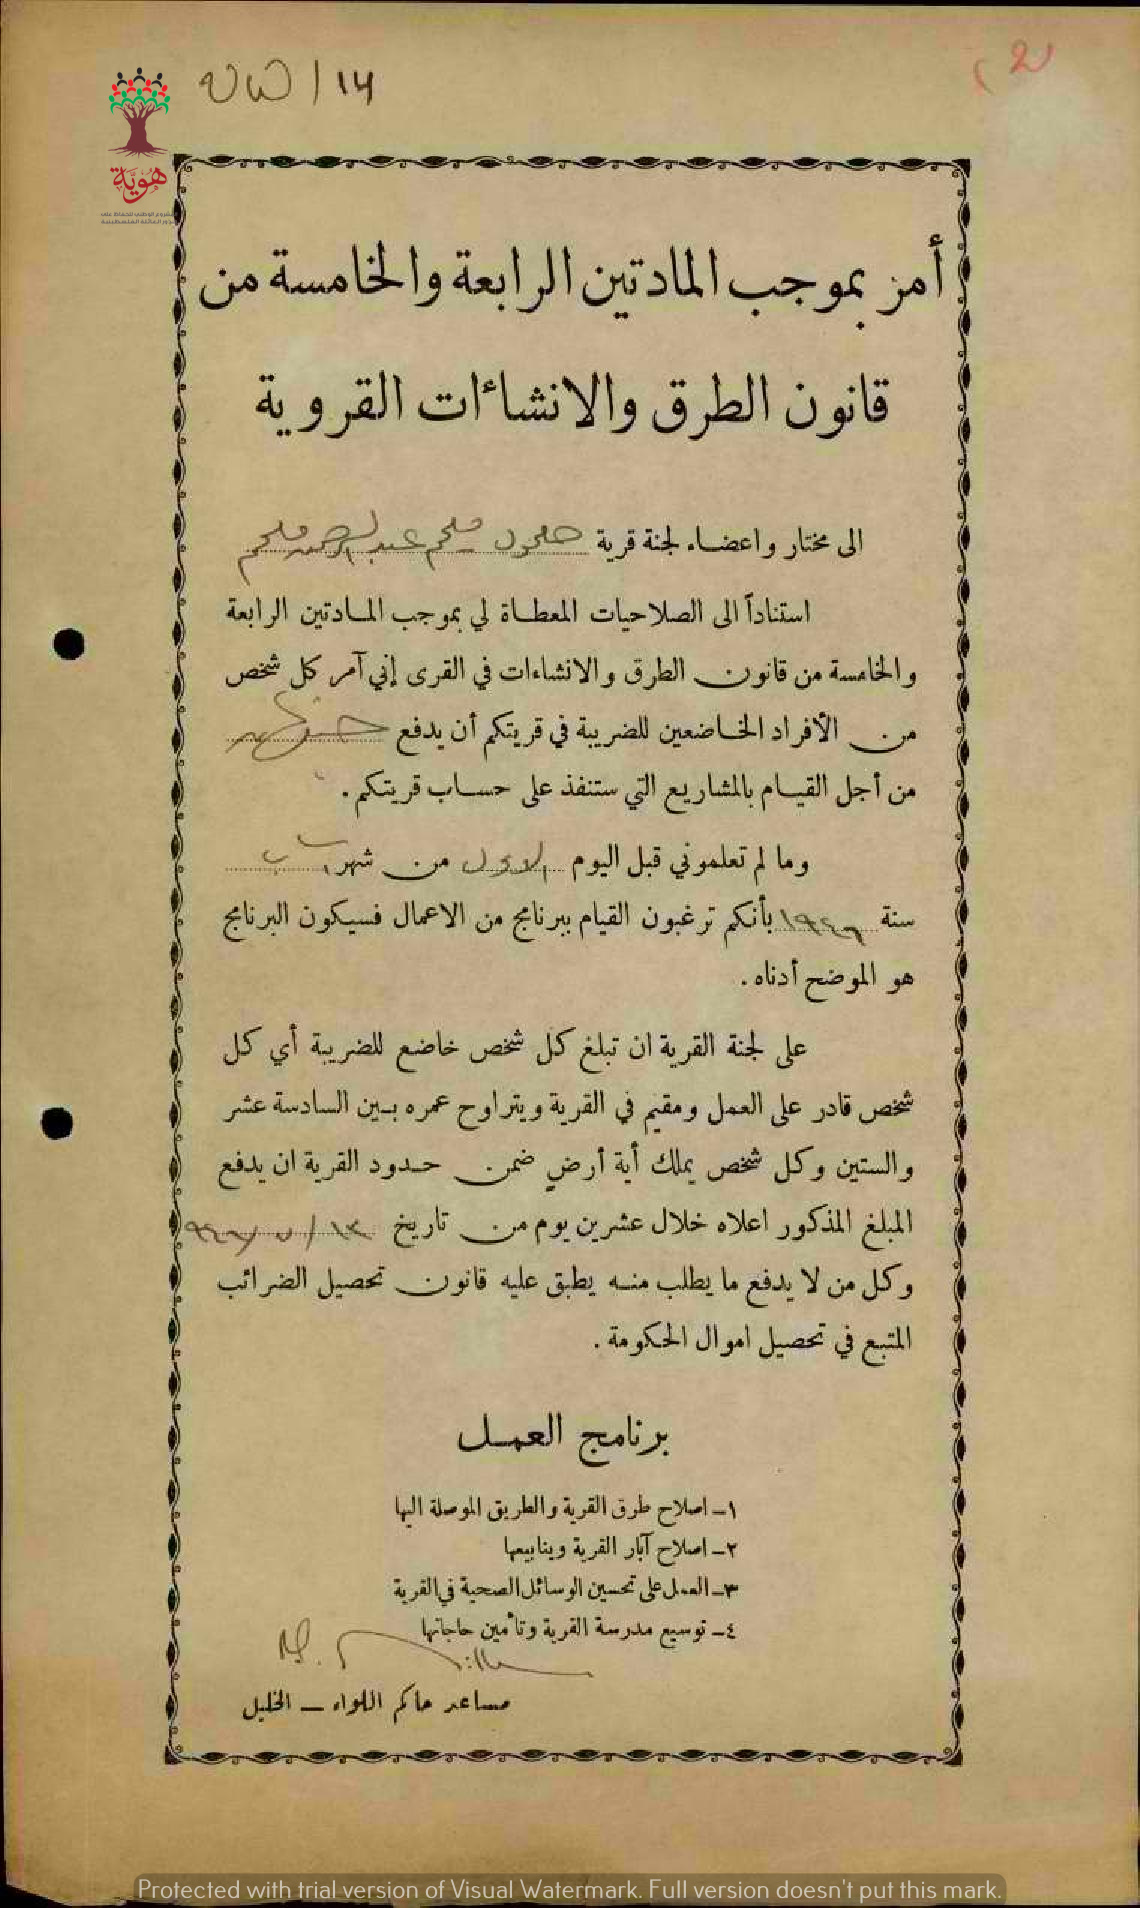 ١٤ /
هوية
أمر بموجب المادتين الرابعة والخامسة من
قانون الطرق والانشاءات القروية
الى مختار واعضاء لجنة قرية حلحول ملحم عبدالرحمن ملحم
استناداً الى الصلاحيات المعطاة لي بموجب المادتين الرابعة
والخامسة من قانون الطرق والانشاءات في القرى إني آمر كل شخص
من الأفراد الخاضعين للضريبة في قريتكم أن يدفع
من أجل القيام بالمشاريع التي ستنفذ على حساب قريتكم .
وما لم تعلموني قبل اليوم الاول من شهر آب
سنة ١٩٤٦ بأنكم ترغبون القيام ببرنامج من الاعمال فسيكون البرنامج
هو الموضح أدناه .
على لجنة القرية ان تبلغ كل شخص خاضع للضريبة أي كل
شخص قادر على العمل ومقيم في القرية ويتراوح عمره بين السادسة عشر
والستين وكل شخص يملك أية أرض ضمن حدود القرية ان يدفع
المبلغ المذكور اعلاه خلال عشرين يوم من تاريخ ١٣/٧/٩٤٦
وكل من لا يدفع ما يطلب منه يطبق عليه قانون تحصيل الضرائب
المتبع في تحصيل اموال الحكومة .
برنامج العمل
١ــ اصلاح طرق القرية والطريق الموصلة اليها
٢ــ اصلاح آبار القرية وينابيعها
٣ــ العمل على تحسين الوسائل الصحية في القرية
٤ــ توسيع مدرسة القرية وتأمين حاجاتها
مساعد حاكم اللواء ــ الخليل
Protected with trial version of Visual Watermark. Full version doesn't put this mark.